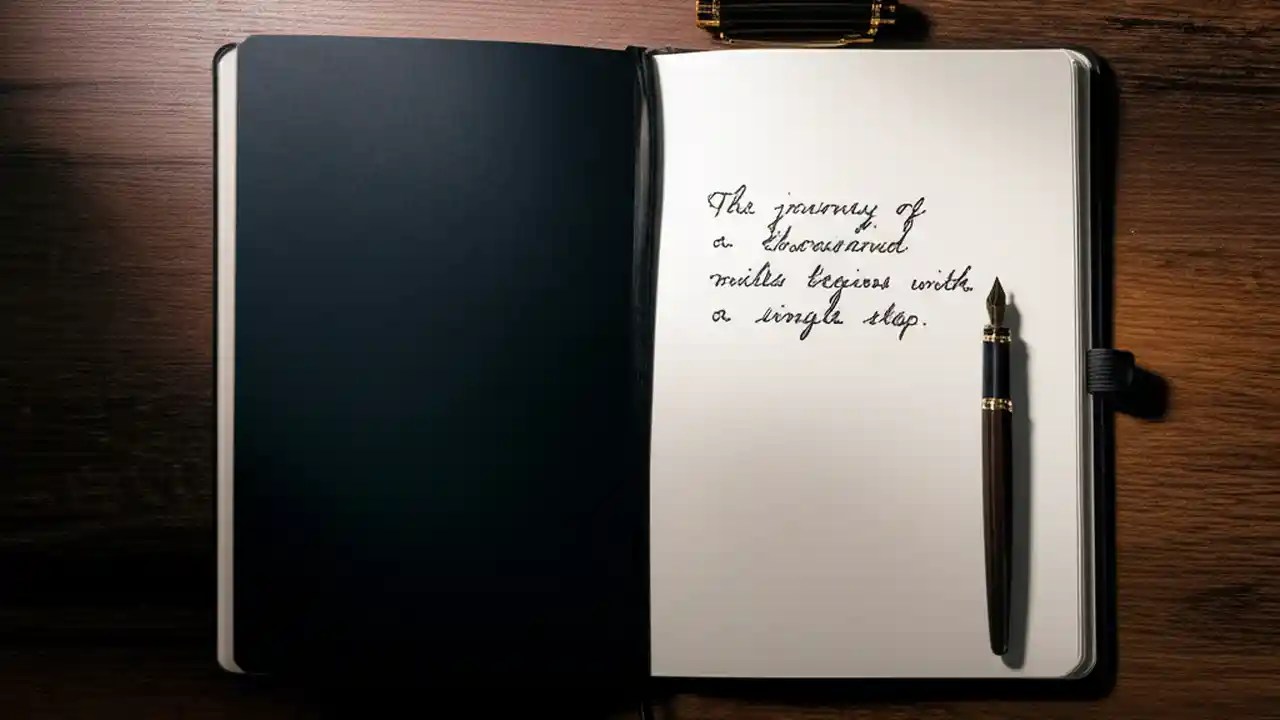 The journey of
a thousand
miles begins with
a single step.